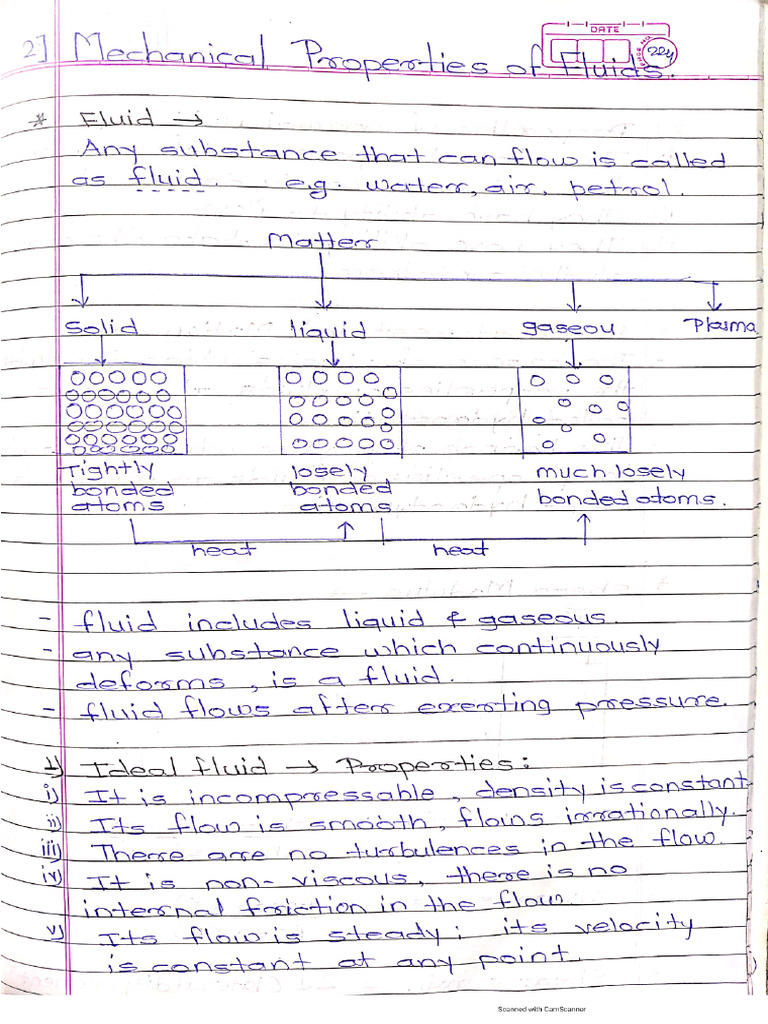 DATE
PAGE NO.
224
2] Mechanical Properties of Fluids.
* Fluid →
Any substance that can flow is called
as fluid. e.g. water, air, petrol.
Matter
Solid liquid gaseou Plasma
Tightly losely much losely
bonded bonded bonded atoms.
atoms atoms
heat heat
- fluid includes liquid & gaseous.
- any substance which continuously
deforms, is a fluid.
- fluid flows after exerting pressure.
Ideal fluid → Properties:
i) It is incompressable, density is constant
ii) Its flow is smooth, flows irrationally.
iii) There are no turbulences in the flow.
iv) It is non-viscous, there is no
internal friction in the flow.
v) Its flow is steady; its velocity
is constant at any point.
Scanned with CamScanner